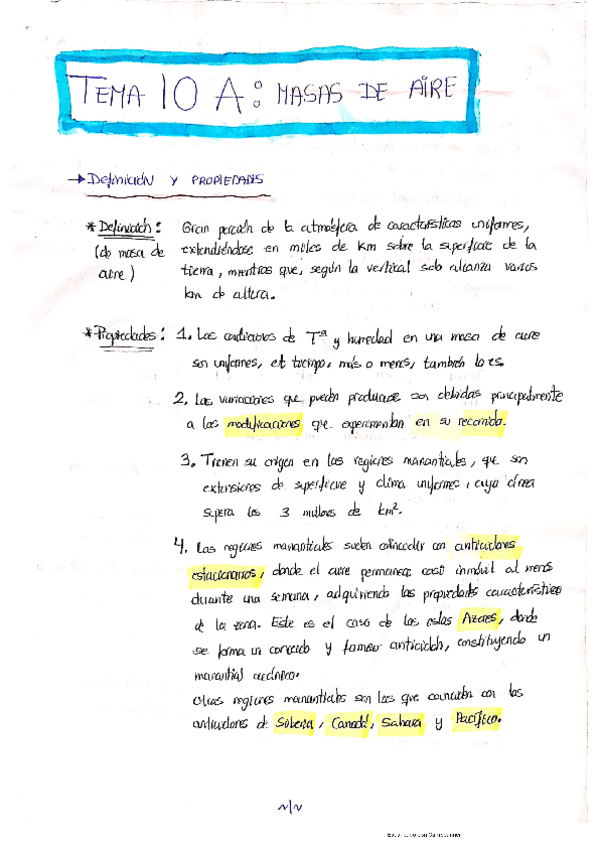 TEMA 10 A: MASAS DE AIRE
→ Definición y PROPIEDADES
* Definición: Gran porción de la atmósfera de características uniformes,
(de masa de extendiéndose en miles de km sobre la superficie de la
aire) tierra, mientras que, según la vertical solo alcanza varios
km de altura.
* Propiedades: 1. Las condiciones de Tª y humedad en una masa de aire
son uniformes, el tiempo, más o menos, también lo es.
2. Las variaciones que pueden producirse son debidas principalmente
a las modificaciones que experimentan en su recorrido.
3. Tienen su origen en las regiones manantiales, que son
extensiones de superficie y clima uniformes, cuya área
supera los 3 millones de km².
4. Las regiones manantiales suelen coincidir con anticiclones
estacionarios, donde el aire permanece casi inmóvil al menos
durante una semana, adquiriendo las propiedades características
de la zona. Este es el caso de las islas Azores, donde
se forma un conocido y famoso anticiclón, constituyendo un
manantial oceánico.
Otras regiones manantiales son las que coinciden con los
anticiclones de Siberia, Canadá, Sahara y Pacífico.
Escaneado con CamScanner